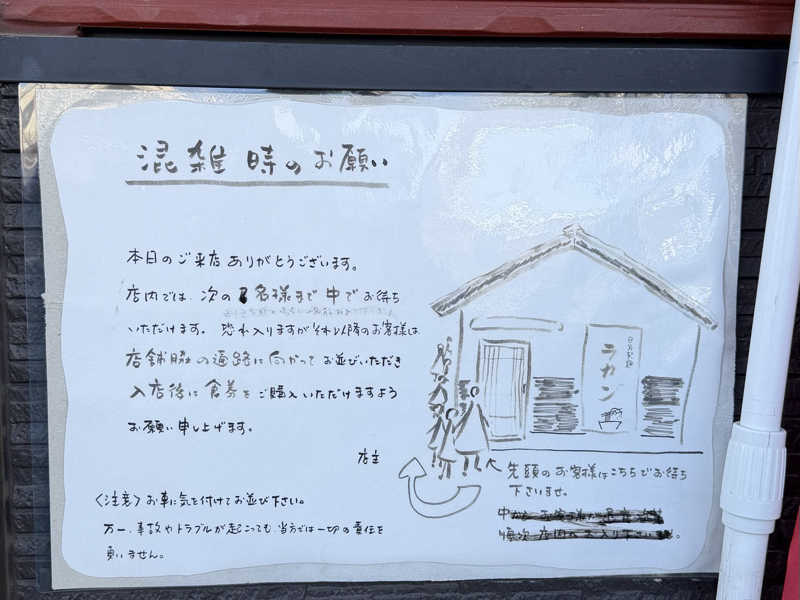 混雑時のお願い
本日のご来店ありがとうございます。
店内では、次の7名様まで中でお待ち
いただけます。恐れ入りますがそれ以降のお客様は
店舗脇の通路に向かってお並びいただき
入店後に食券をご購入いただけますよう
お願い申し上げます。
店主
<注意>お車に気を付けてお並び下さい。
万一、事故やトラブルが起こっても、当方では一切の責任を
負いません。
ラカン
先頭のお客様はこちらでお待ち
下さいませ。